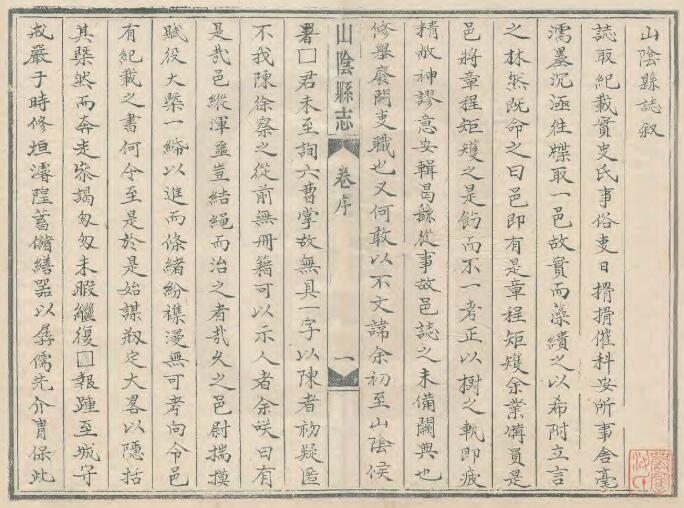 山陰縣誌叙
誌取紀載實史氏事俗吏日搰搰催科安所事舍毫
濡墨沉涵往牒取一邑故實而藻繢之以希附立言
之林然既命之曰邑即有是章程矩矱余業備員是
邑將章程矩矱之是飭而不一考正以樹之執即疲
精敝神謬意安輯曷繇從事故邑誌之未備闕典也
修舉廢闕吏職也又何敢以不文諱余初至山陰候
山陰縣志 卷序 一
署□君未至詢六曹掌故無具一字以陳者初疑匿
不我陳徐察之從前無冊籍可以示人者余咲曰有
是哉邑縱渾噩豈結繩而治之者哉久之邑尉揣摸
賦役大槩一綍以進而條緒紛襍漫無可考向令邑
有紀載之書何令至是於是始謀剏定大畧以隱括
其槩然而奔走叅謁匆匆未暇繼復□報踵至城守
戒嚴于時修垣濬隍蓄儲繕器以孱儒先介冑保此